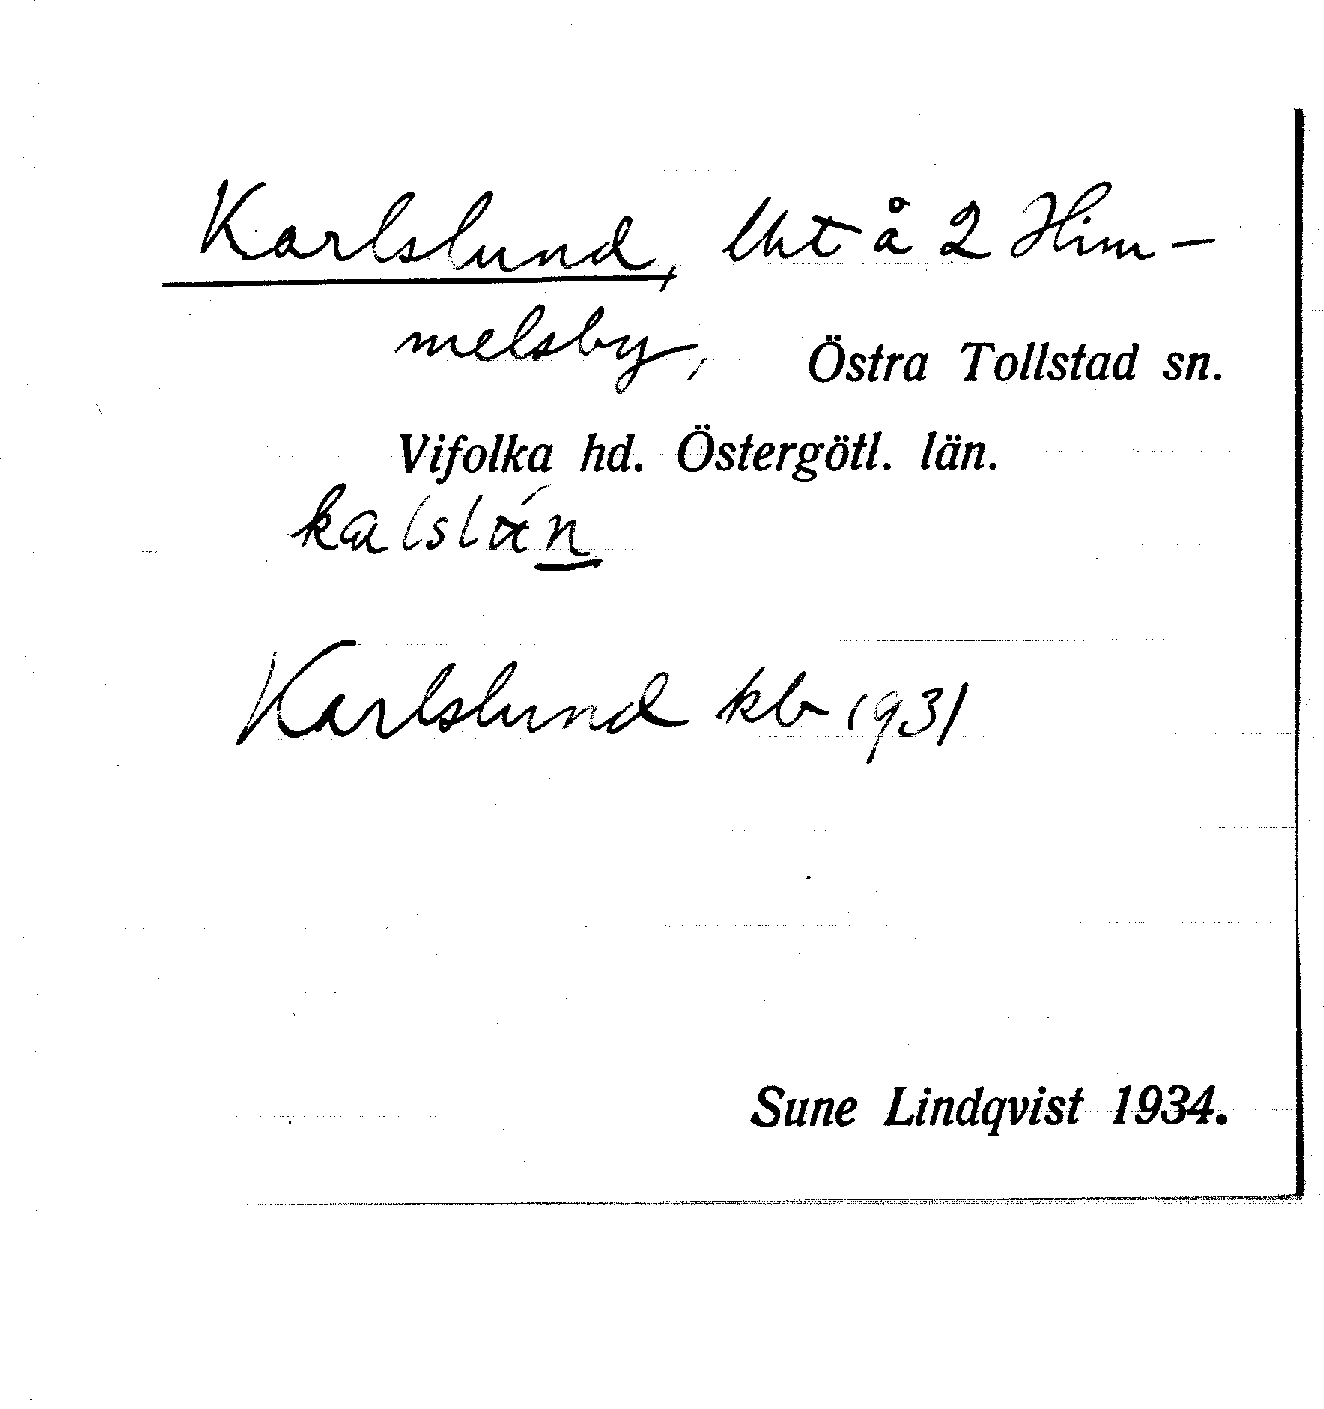 Karlslund, lht å 2 Him-
melsby, Östra Tollstad sn.
Vifolka hd. Östergötl. län.
Karlslund kb 1931
Sune Lindqvist 1934.